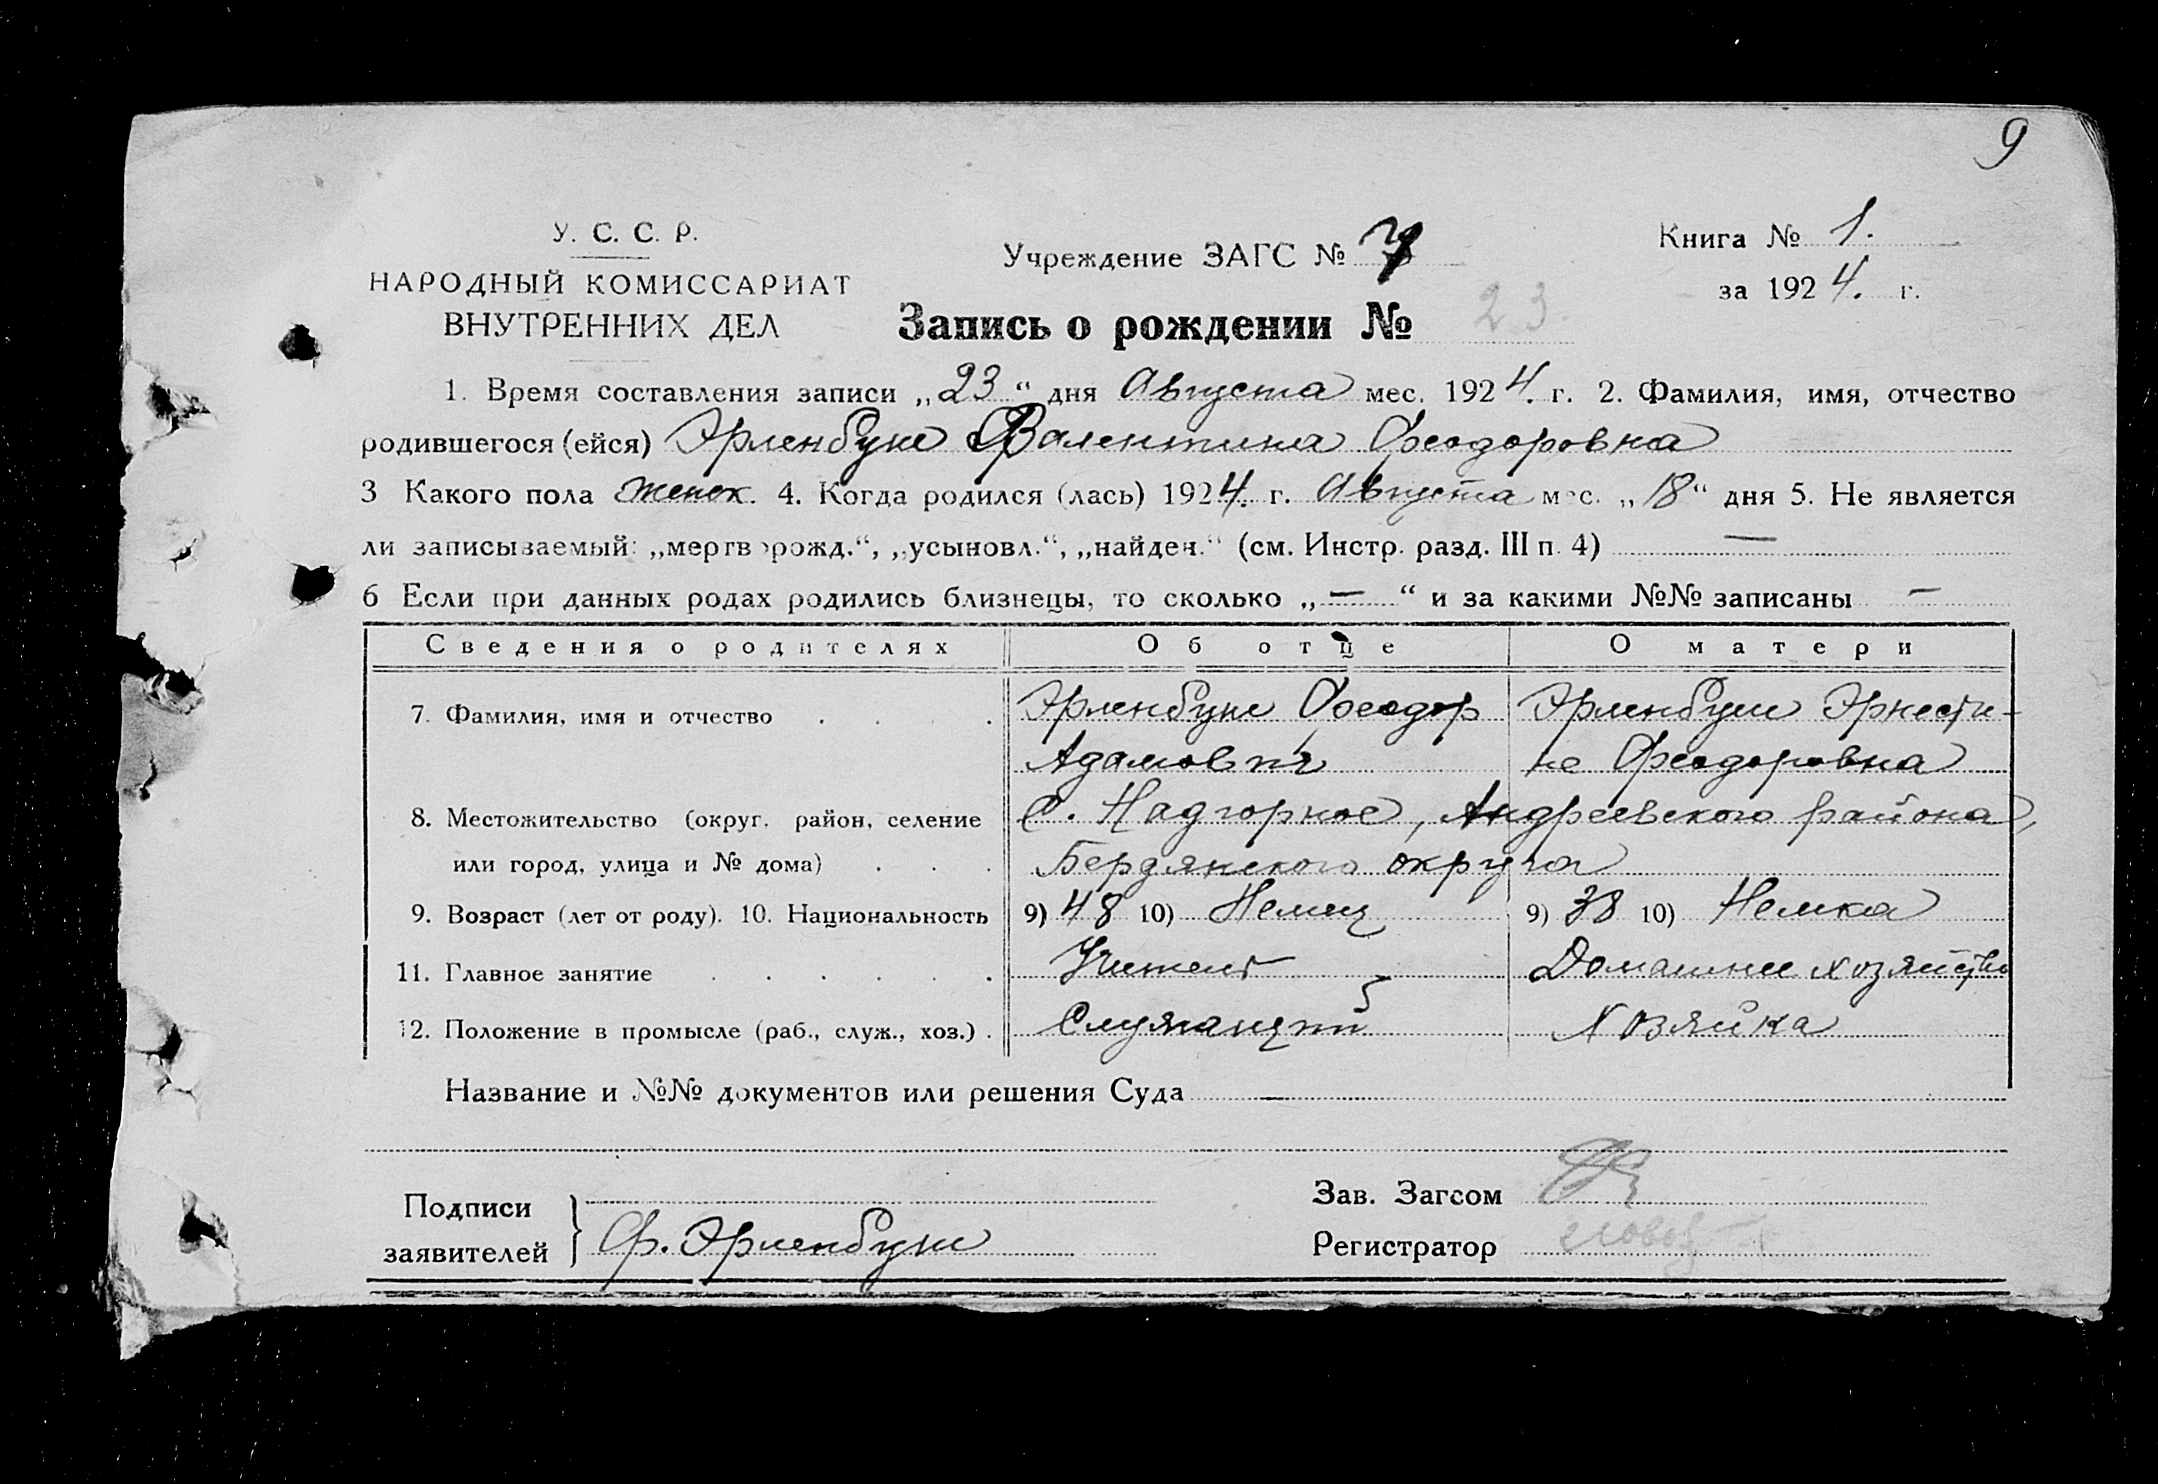 9
У. С. С. Р.
НАРОДНЫЙ КОМИССАРИАТ
ВНУТРЕННИХ ДЕЛ
Учреждение ЗАГС №
Книга № 1.
за 1924. г.
Запись о рождении № 23.
1. Время составления записи „23“ дня Августа мес. 1924. г. 2. Фамилия, имя, отчество
родившегося (ейся) Эрленбуш Валентина Феодоровна
3 Какого пола женск. 4. Когда родился (лась) 1924. г. Августа мес. „18“ дня 5. Не является
ли записываемый: „мертворожд.“, „усыновл.“, „найден.“ (см. Инстр. разд. III п. 4) —
6 Если при данных родах родились близнецы, то сколько „—“ и за какими №№ записаны —
Сведения о родителях Об отце О матери
7. Фамилия, имя и отчество . . . . Эрленбуш Феодор Эрленбуш Эрнести-
Адамович не Феодоровна
8. Местожительство (округ, район, селение С. Надгорное, Андреевского района,
или город, улица и № дома) . . . Бердянского округа
9. Возраст (лет от роду). 10. Национальность 9) 48 10) Немец 9) 38 10) Немка
11. Главное занятие . . . . . . Учитель Домашнее хозяйство
12. Положение в промысле (раб., служ., хоз.) . Служащий Хозяйка
Название и №№ документов или решения Суда —
Подписи
заявителей } Ф. Эрленбуш
Зав. Загсом
Регистратор